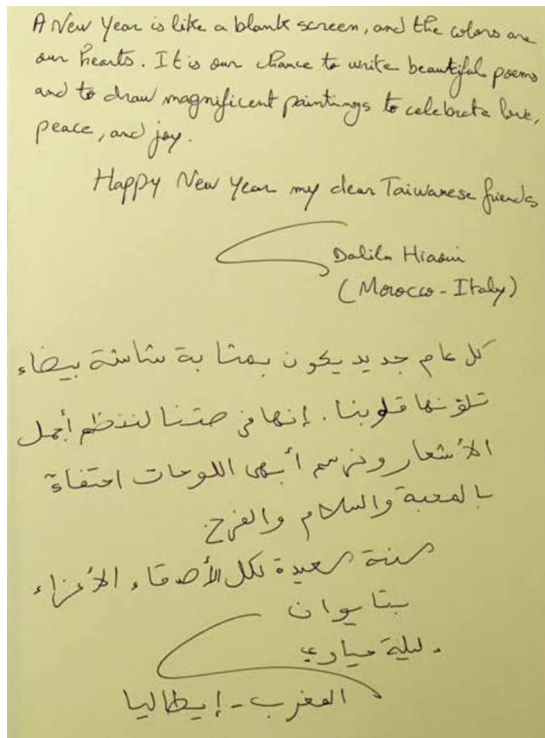 A New Year is like a blank screen, and the colors are
our hearts. It is our chance to write beautiful poems
and to draw magnificent paintings to celebrate love,
peace, and joy.
Happy New Year my dear Taiwanese friends
Dalila Hiaoui
(Morocco - Italy)
كل عام جديد يكون بمثابة شاشة بيضاء
تلونها قلوبنا. إنها فرصتنا لننظم أجمل
الأشعار ونرسم أبهى اللوحات احتفاءً
بالمحبة والسلام والفرح.
سنة سعيدة لكل الأصدقاء الأعزاء
بتايوان
دليلة حياوي
المغرب - إيطاليا